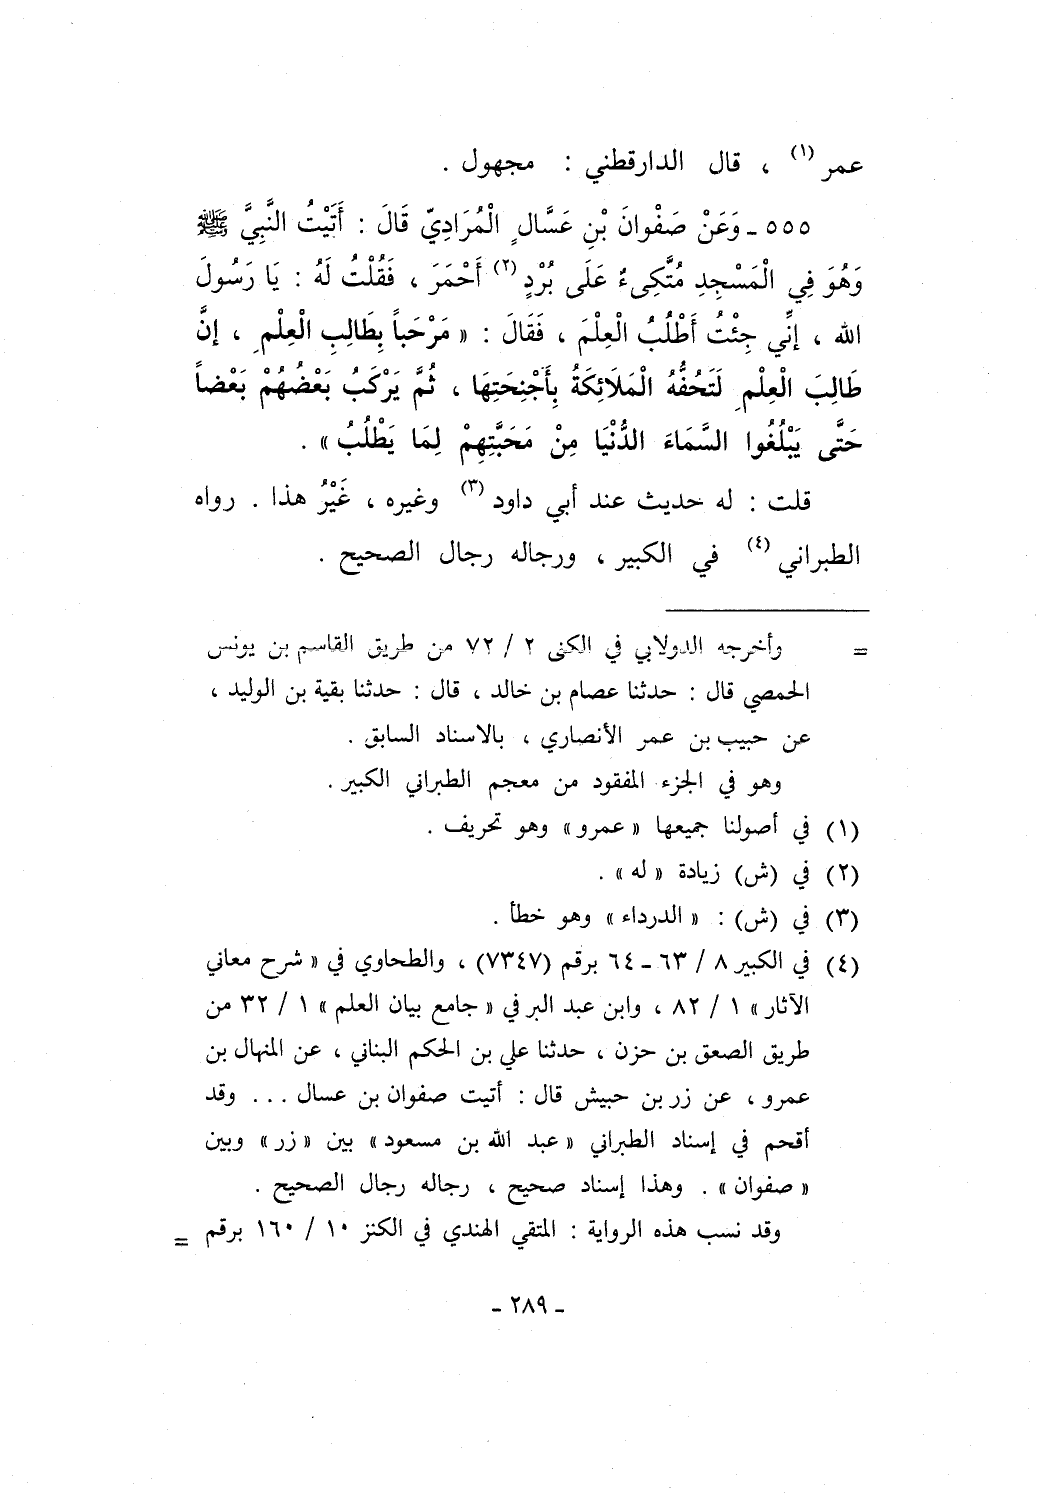 عمر (١) ، قال الدارقطني : مجهول .
٥٥٥ ـ وَعَنْ صَفْوانَ بْنِ عَسَّالٍ الْمُرَادِيّ قَالَ : أَتَيْتُ النَّبِيَّ ﷺ
وَهُوَ فِي الْمَسْجِدِ مُتَّكِىءٌ عَلَى بُرْدٍ (٢) أَحْمَرَ ، فَقُلْتُ لَهُ : يَا رَسُولَ
الله ، إنِّي جِئْتُ أَطْلُبُ الْعِلْمَ ، فَقَالَ : « مَرْحَباً بِطَالِبِ الْعِلْمِ ، إنَّ
طَالِبَ الْعِلْمِ لَتَحُفُّهُ الْمَلَائِكَةُ بِأَجْنِحَتِهَا ، ثُمَّ يَرْكَبُ بَعْضُهُمْ بَعْضاً
حَتَّى يَبْلُغُوا السَّمَاءَ الدُّنْيَا مِنْ مَحَبَّتِهِمْ لِمَا يَطْلُبُ » .
قلت : له حديث عند أبي داود (٣) وغيره ، غَيْرُ هذا . رواه
الطبراني (٤) في الكبير ، ورجاله رجال الصحيح .
= وأخرجه الدولابي في الكنى ٢ / ٧٢ من طريق القاسم بن يونس
الحمصي قال : حدثنا عصام بن خالد ، قال : حدثنا بقية بن الوليد ،
عن حبيب بن عمر الأنصاري ، بالاسناد السابق .
وهو في الجزء المفقود من معجم الطبراني الكبير .
(١) في أصولنا جميعها « عمرو » وهو تحريف .
(٢) في (ش) زيادة « له » .
(٣) في (ش) : « الدرداء » وهو خطأ .
(٤) في الكبير ٨ / ٦٣ ـ ٦٤ برقم (٧٣٤٧) ، والطحاوي في « شرح معاني
الآثار » ١ / ٨٢ ، وابن عبد البر في « جامع بيان العلم » ١ / ٣٢ من
طريق الصعق بن حزن ، حدثنا علي بن الحكم البناني ، عن المنهال بن
عمرو ، عن زر بن حبيش قال : أتيت صفوان بن عسال ... وقد
أقحم في إسناد الطبراني « عبد الله بن مسعود » بين « زر » وبين
« صفوان » . وهذا إسناد صحيح ، رجاله رجال الصحيح .
وقد نسب هذه الرواية : المتقي الهندي في الكنز ١٠ / ١٦٠ برقم =
ـ ٢٨٩ ـ